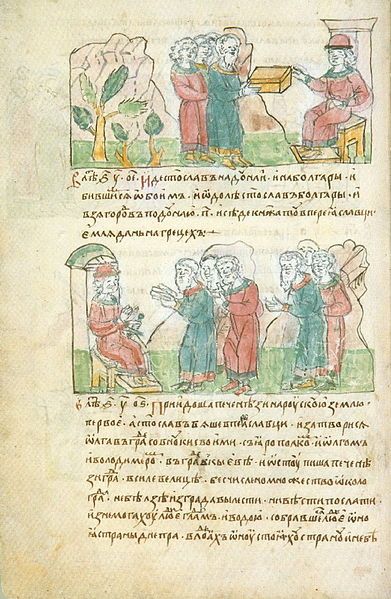 В лѣ҃ ѕ҃ у҃ ое҃ Иде стославъ на дѹнаи и на болгары и
бившимсѧ ѡбоимъ и ѡдолѣ стославъ болгары и
взѧ горѡⷣ въ по дѹнаю п҃ и седе кнѧжа тѹ в переѧславци
емлѧ дань на грецехъ
В лѣ҃ ѕ҃ у҃ оѕ҃ Приидоша печенѣзи на роускою землю
первое а стославъ бѧше в переѧславци и затворисѧ
ѡлга въ граⷣ со ѹнѹки своими съ ꙗрополкоⷨ и ѡлгомъ
и володимероⷨ въ граⷣ киевѣ и ѡстѹпиша печенѣзи
граⷣ в силе велице бесчислено множество ѡколо
граⷣ не бѣ лзѣ из града вылести ни вѣсти послати
изнемогахѹ люⷣе глаⷣмъ и водою собравшеⷭ люⷣе ѡноѧ
страны днепра в лоⷣꙗⷯ и ѡб ѡнѹ странѹ и не бѣ